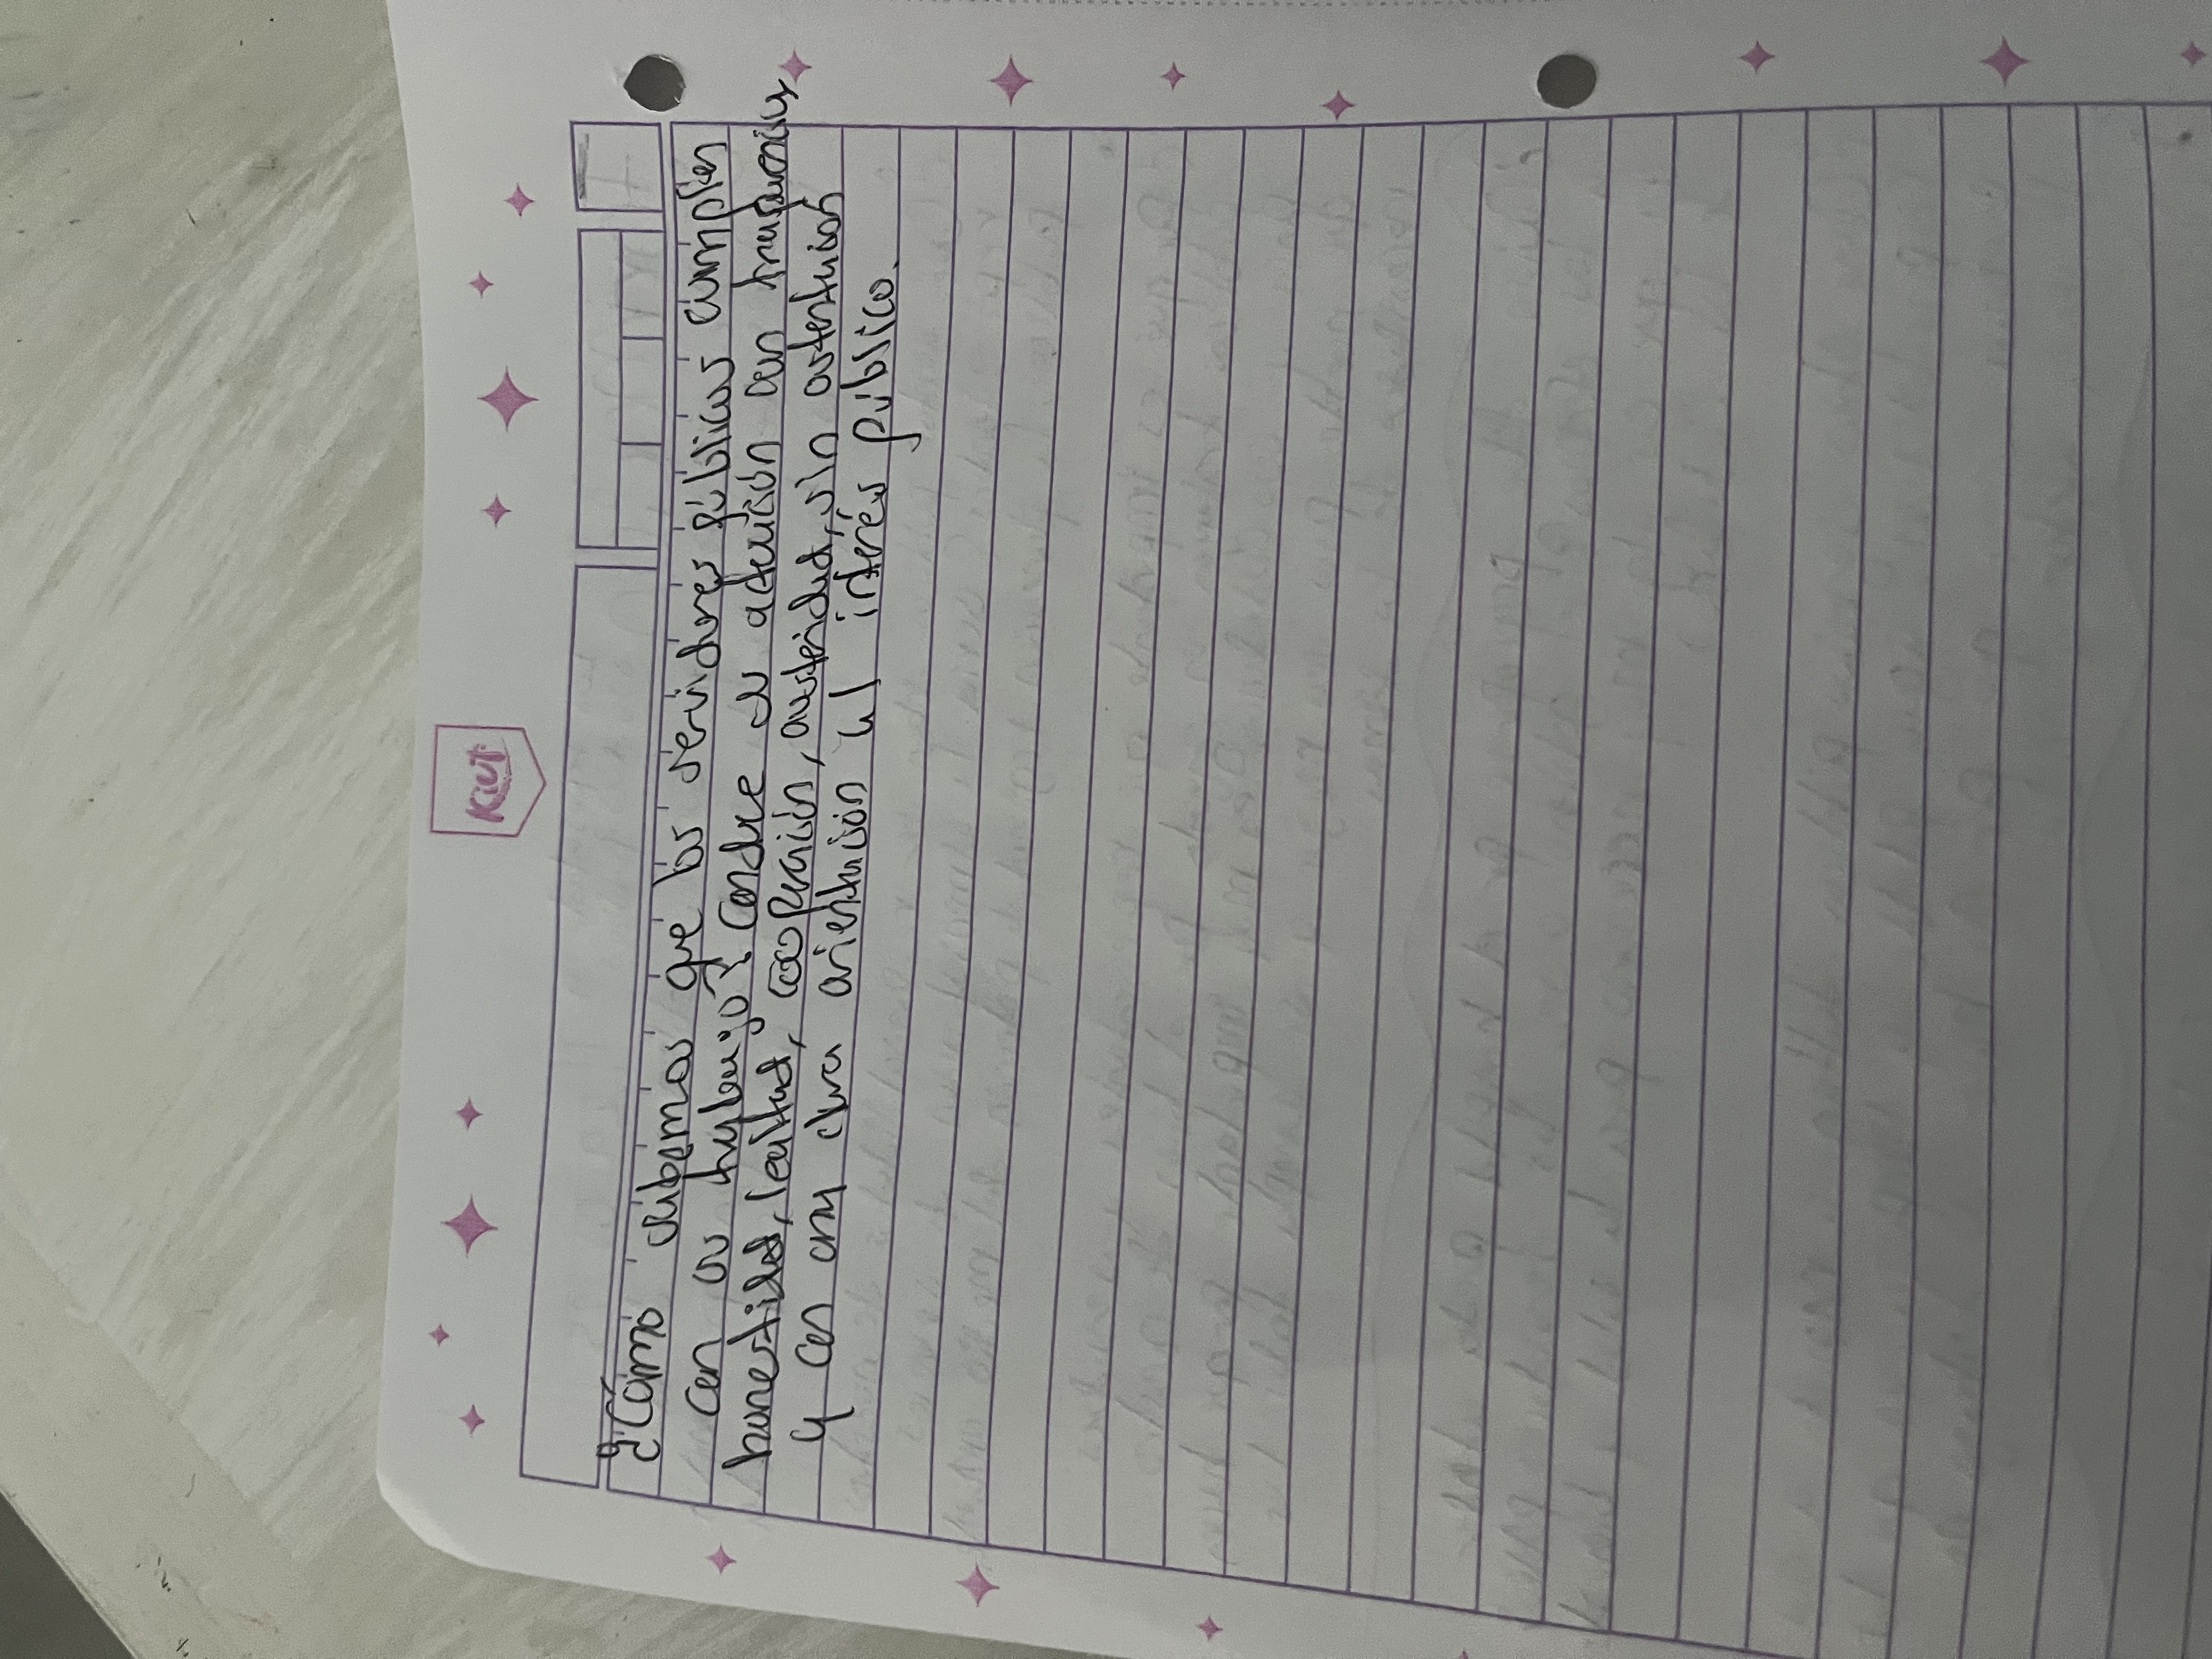 Kiut
¿Cómo sabemos que los servidores públicos cumplen
con su trabajo? Conduce su actuación con transparencia,
honestidad, lealtad, cooperación, austeridad, sin ostentación
y con una clara orientación al interés público.